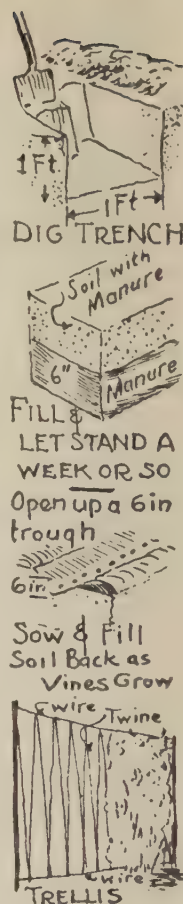 1Ft.
1Ft
DIG TRENCH
Soil with
Manure
6"
Manure
FILL &
LET STAND A
WEEK OR SO
Open up a 6in
trough
6in
Sow & Fill
Soil Back as
Vines Grow
wire
Twine
wire
TRELLIS